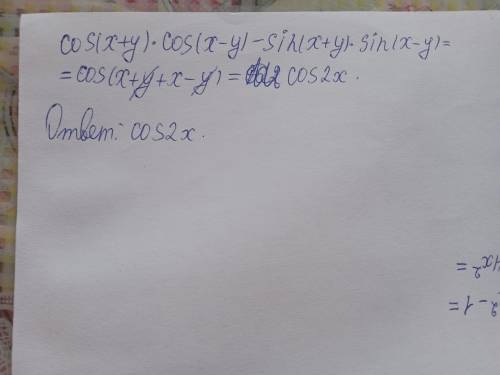 cos(x+y)·cos(x-y)-sin(x+y)·sin(x-y)=
=cos(x+y+x-y)= cos2x.
Ответ: cos2x.